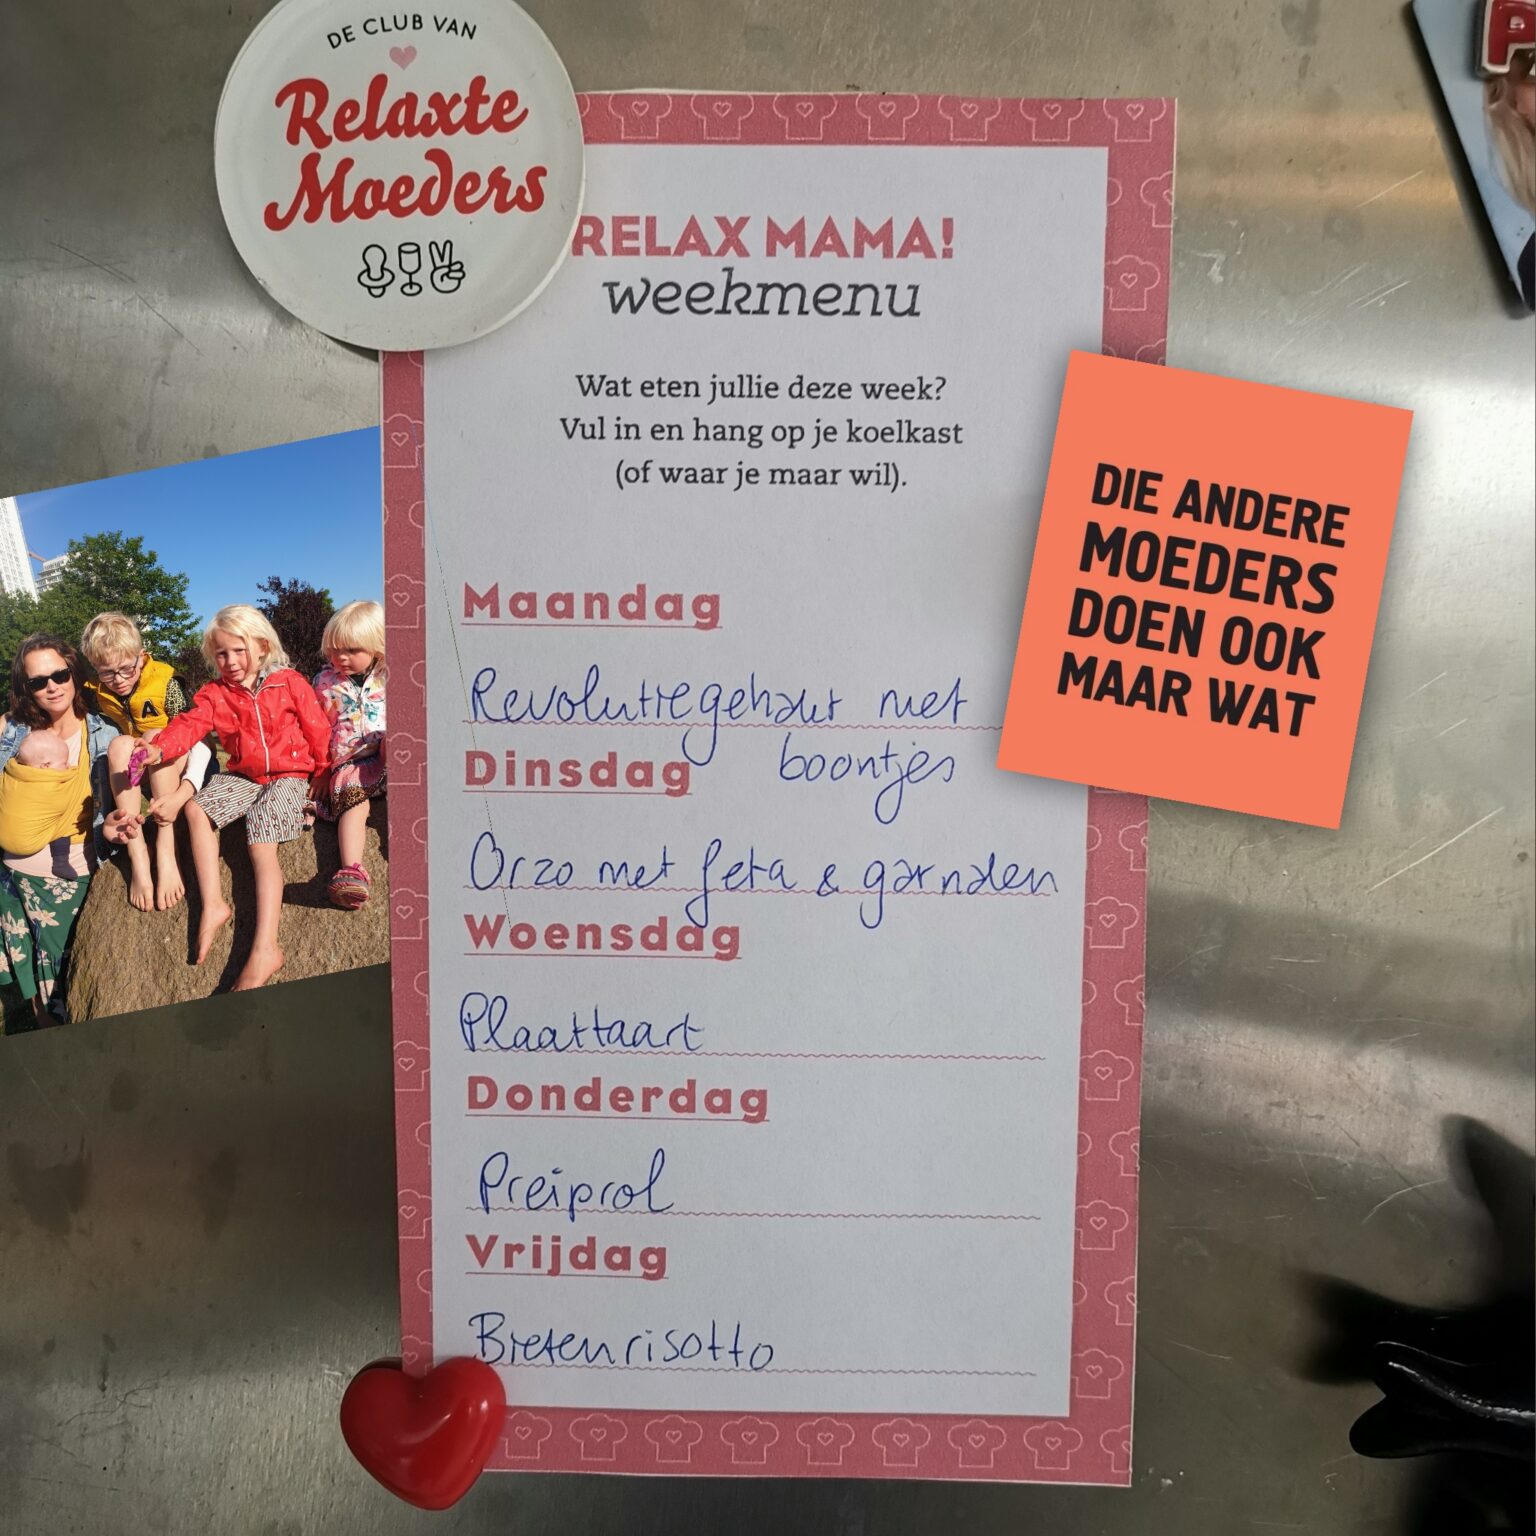 DE CLUB VAN
Relaxte
Moeders
RELAX MAMA!
weekmenu
Wat eten jullie deze week?
Vul in en hang op je koelkast
(of waar je maar wil).
DIE ANDERE
MOEDERS
DOEN OOK
MAAR WAT
Maandag
Revolutiegehakt met
boontjes
Dinsdag
Orzo met feta & garnalen
Woensdag
Plaattaart
Donderdag
Preiprol
Vrijdag
Bietenrisotto
A